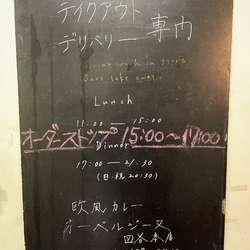 テイクアウト
デリバリー専門
Lunch
11:00 — 15:00
オーダーストップ 15:00〜17:00
Dinner
17:00 — 21:30
(日・祝 20:30)
欧風カレー
オーベルジーヌ
四谷本店